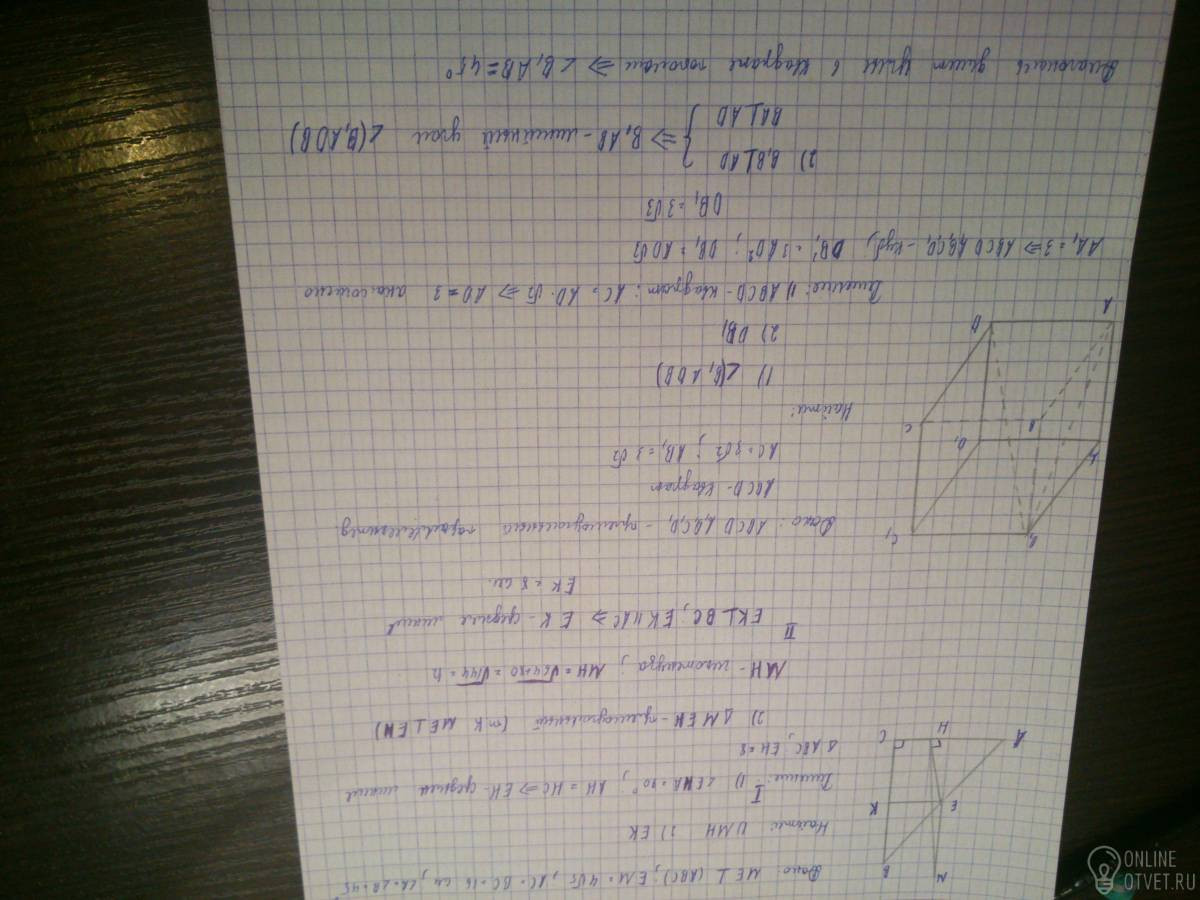 Дано: ME ⊥ (ABC); EM = 4√5, AC = BC = 16 см, ∠A = ∠B = 45
Найти: 1) MH 2) EK
Решение: 1) ∠EHA = 90°, AH = HC ⇒ EH - средняя линия
I
△ABC, EH = 8
2) △MEH - прямоугольный (т.к ME ⊥ EH)
MH - гипотенуза, MH = √64+80 = √144 = 12
II
EK ⊥ BC, EK || AC ⇒ EK - средняя линия
EK = 8 см
B
M
K
E
C
H
A
Дано: ABCD A₁B₁C₁D₁ - прямоугольный
ABCD - квадрат
AC = 3√2; AB₁ = 3√2
Найти:
1) ∠(B₁ADB)
2) DB₁
Решение: 1) ABCD - квадрат; AC = AD·√2 ⇒ AD = 3 аналогично
AA₁ = 3 ⇒ ABCD A₁B₁C₁D₁ - куб, DB₁² = 3AD²; DB₁ = AD√3
DB₁ = 3√3
2) B₁B ⊥ AD
BA ⊥ AD
} ⇒ B₁AB - линейный угол ∠(B₁ADB)
Диагональ делит углы в квадрате пополам ⇒ ∠B₁AB = 45°
B₁
C₁
A₁
D₁
B
C
D
A
ONLINE
OTVET.RU